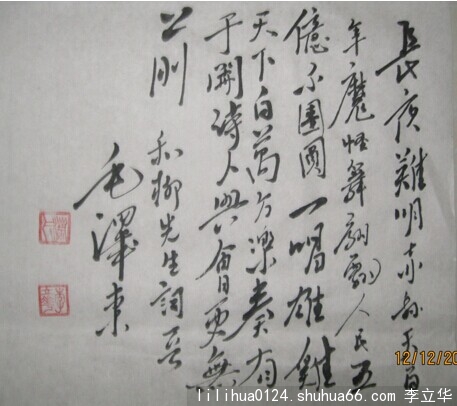 長夜難明赤縣天百
年魔怪舞翩躚人民五
億不團圓一唱雄雞
天下白萬方樂奏有
于闐詩人興會更無
前 和柳先生詞
毛澤東
12/12/20
lilihua0124.shuhua66.com 李立华